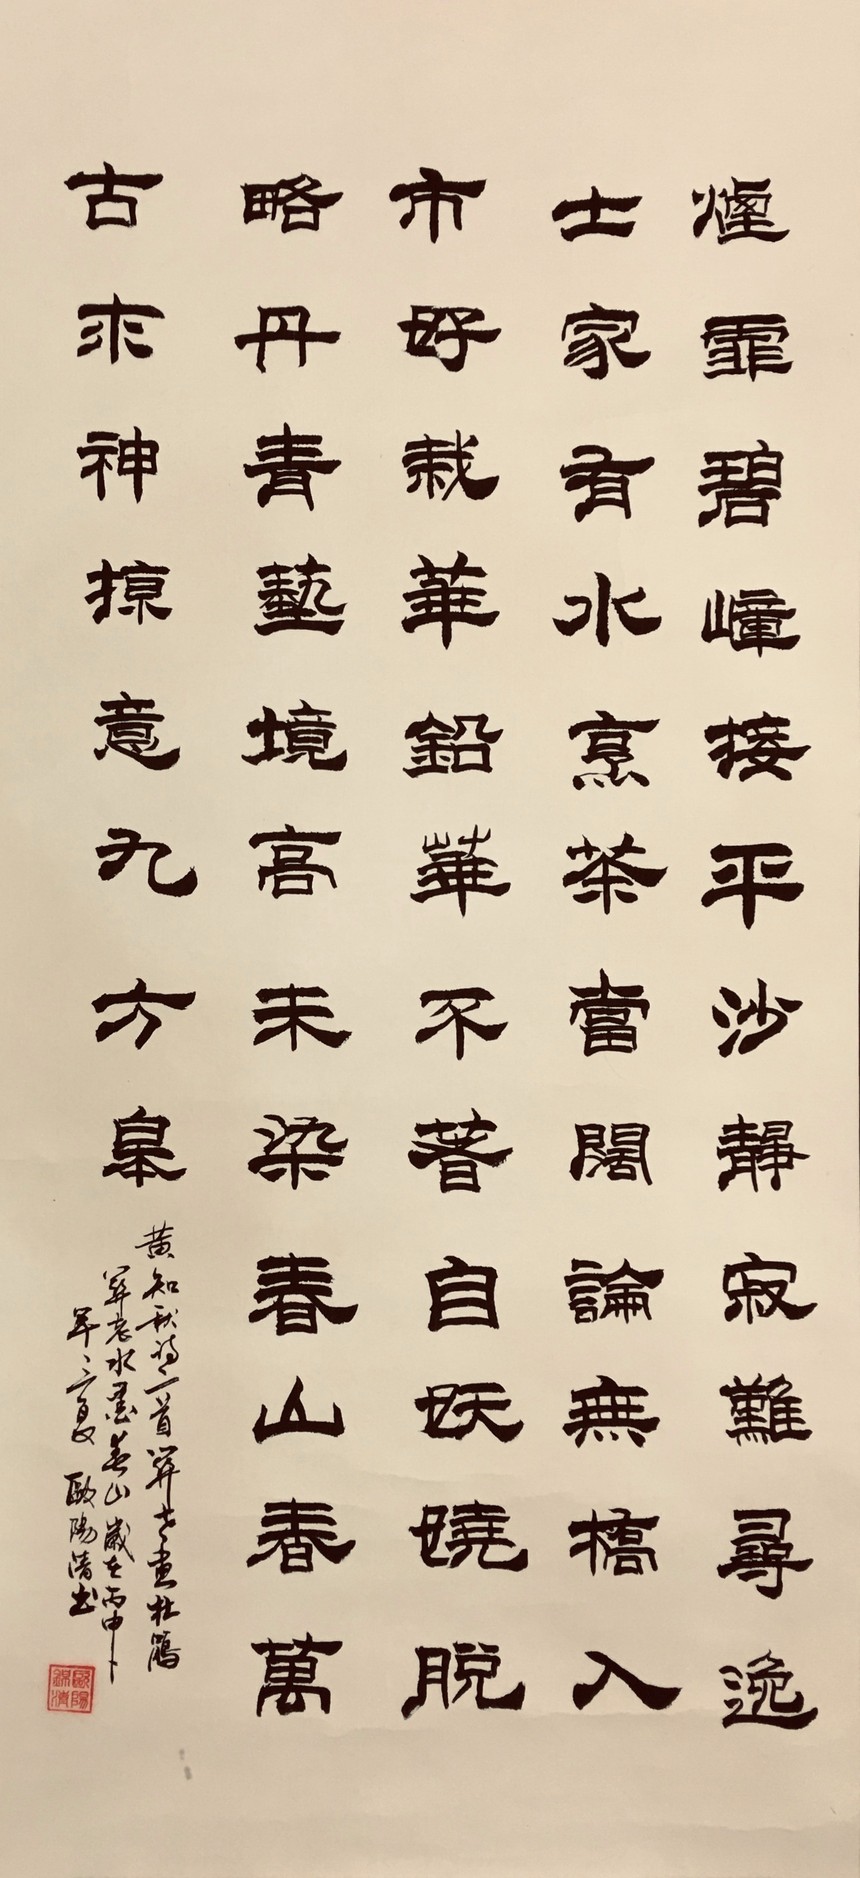 煙霏碧嶂接平沙靜寂難尋逸
士家有水烹茶當闊論無橋入
市好栽華鉛華不著自妖嬈脫
略丹青藝境高未染春山春萬
古求神掠意九方皋
黃知秋詩二首 畫杜鵑
老水墨春山歲在丙申
年之夏 歐陽清書